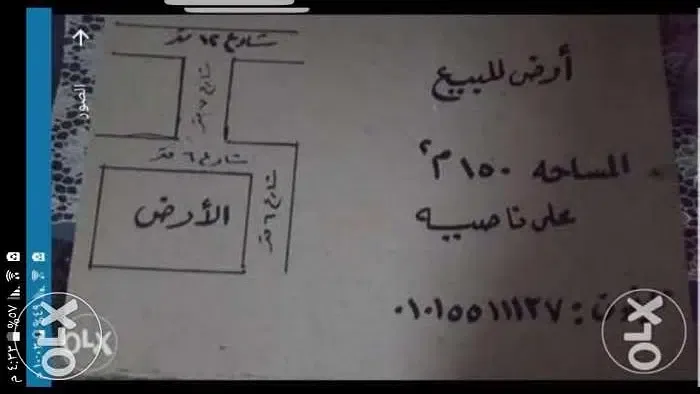 أرض للبيع
المساحه ١٥٠ م٢
على ناصيه
: ٠١٠١٥٥١١١٢٧
شارع ١٢ متر
شارع ٦ متر
شارع ٦ متر
الأرض
الصور
OLX
OLX
OLX
٤:٢٣ م
%٥٧